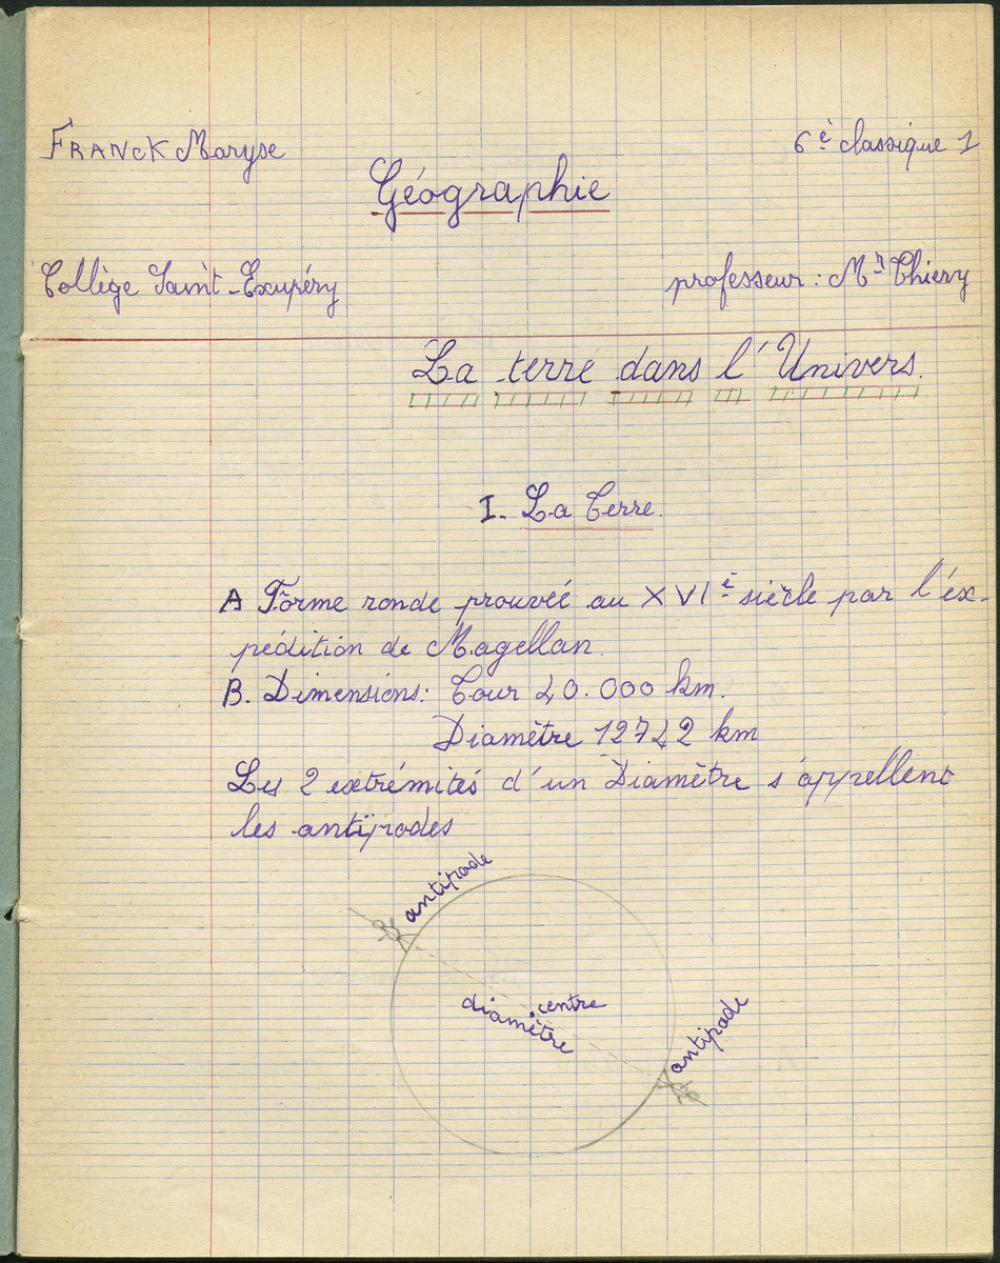 FRANCK Maryse
6è classique 1
Géographie
Collège Saint-Exupéry
professeur : Mr Thiery
La terre dans l'Univers.
I. La Terre.
A Forme ronde prouvée au XVIè siècle par l'ex-
pédition de Magellan.
B. Dimensions: Tour 40.000 km.
Diamètre 12742 km
Les 2 extrémités d'un Diamètre s'appellent
les antipodes
antipode
centre
diamètre
antipode